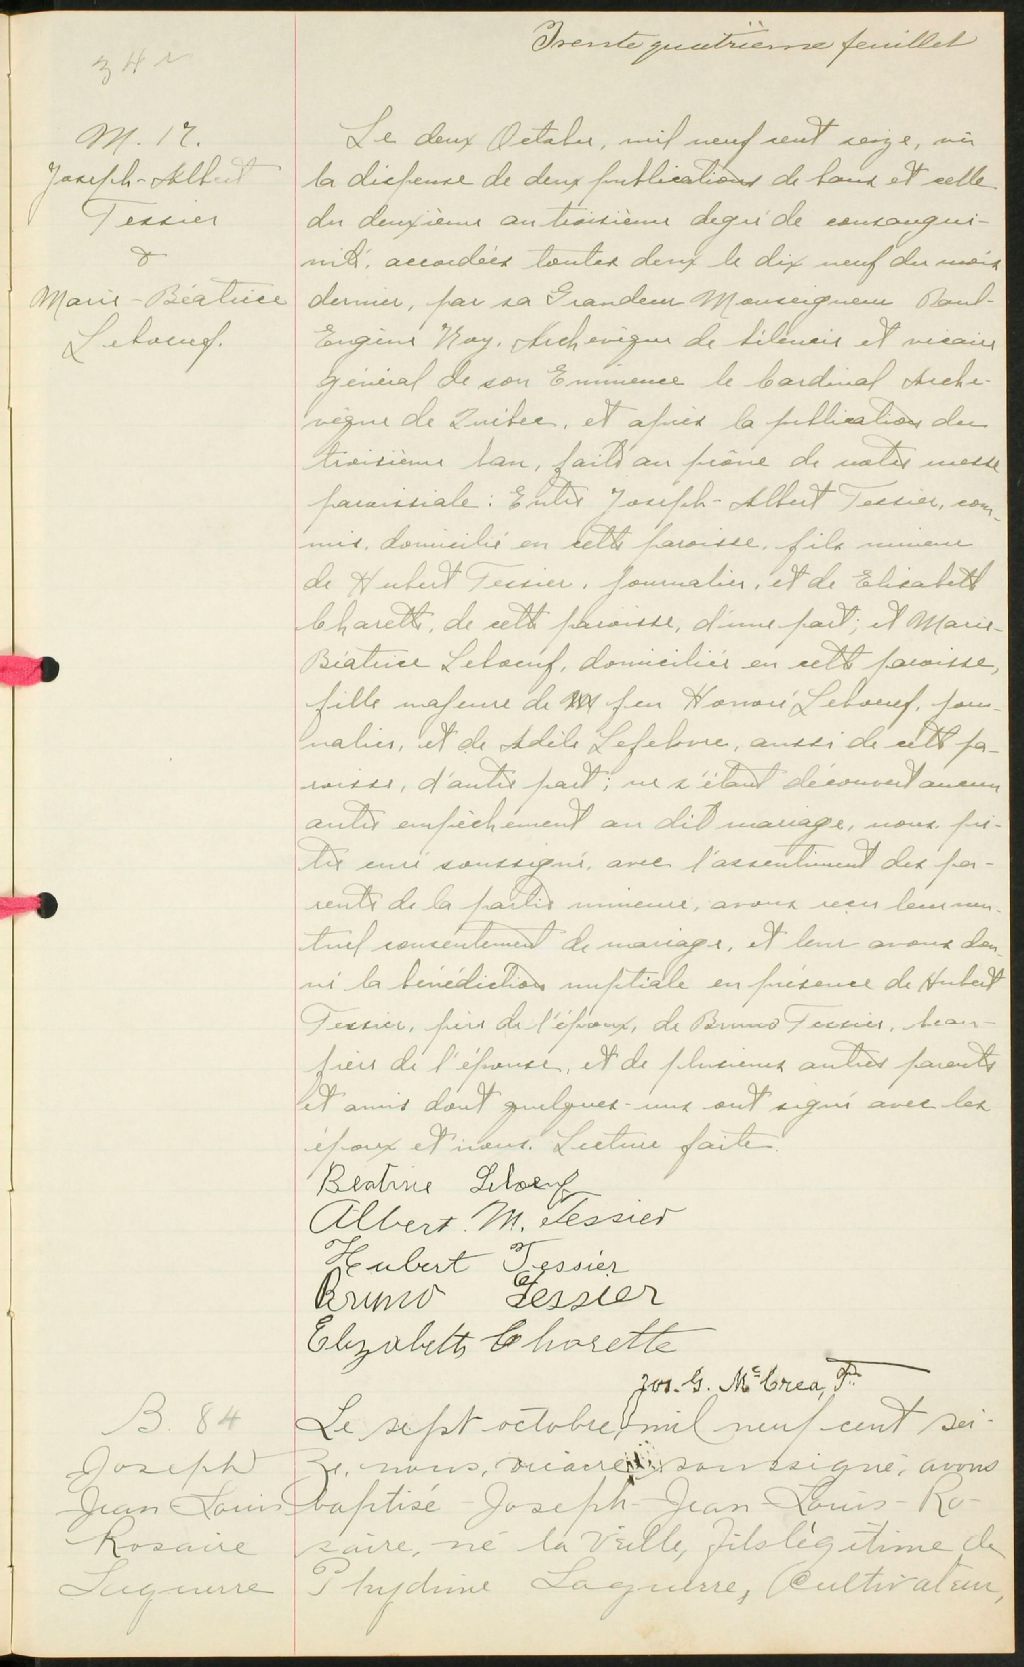 Trente quatrième feuillet
34
M. 17.
Joseph-Albert
Tessier
&
Marie-Béatrice
Leboeuf.
Le deux Octobre, mil neuf cent seize, vu
la dispense de deux publications de bans et celle
du deuxième au troisième degré de consangui-
nité, accordées toutes deux le dix neuf du mois
dernier, par sa Grandeur Monseigneur Paul-
Eugène Roy, Archevêque de Séleucie et vicaire
général de son Eminence le Cardinal Arche-
vêque de Québec, et après la publication du
troisième ban, faite au prône de notre messe
paroissiale: Entre Joseph-Albert Tessier, com-
mis, domicilié en cette paroisse, fils mineur
de Hubert Tessier, journalier, et de Elisabeth
Charette, de cette paroisse, d'une part; et Marie-
Béatrice Leboeuf, domiciliée en cette paroisse,
fille majeure de feu Honoré Leboeuf, jour-
nalier, et de Adèle Lefebvre, aussi de cette pa-
roisse, d'autre part; ne s'étant découvert aucun
autre empêchement au dit mariage, nous, prê-
tre curé soussigné, avec l'assentiment des pa-
rents de la partie mineure, avons reçu leur mu-
tuel consentement de mariage, et leur avons don-
né la bénédiction nuptiale en présence de Hubert
Tessier, père de l'époux, de Bruno Tessier, beau-
frère de l'épouse, et de plusieurs autres parents
et amis dont quelques-uns ont signé avec les
époux et nous. Lecture faite.
Béatrice Leboeuf
Albert. M. Tessier
Hubert Tessier
Bruno Tessier
Elizabeth Charette
Jos. G. McCrea, Ptre
B. 84
Joseph
Jean Louis
Rosaire
Laguerre
Le sept octobre, mil neuf cent sei-
ze, nous, vicaire soussigné, avons
baptisé Joseph-Jean-Louis-Ro-
saire, né la veille, fils légitime de
Phydime Laguerre, Cultivateur,